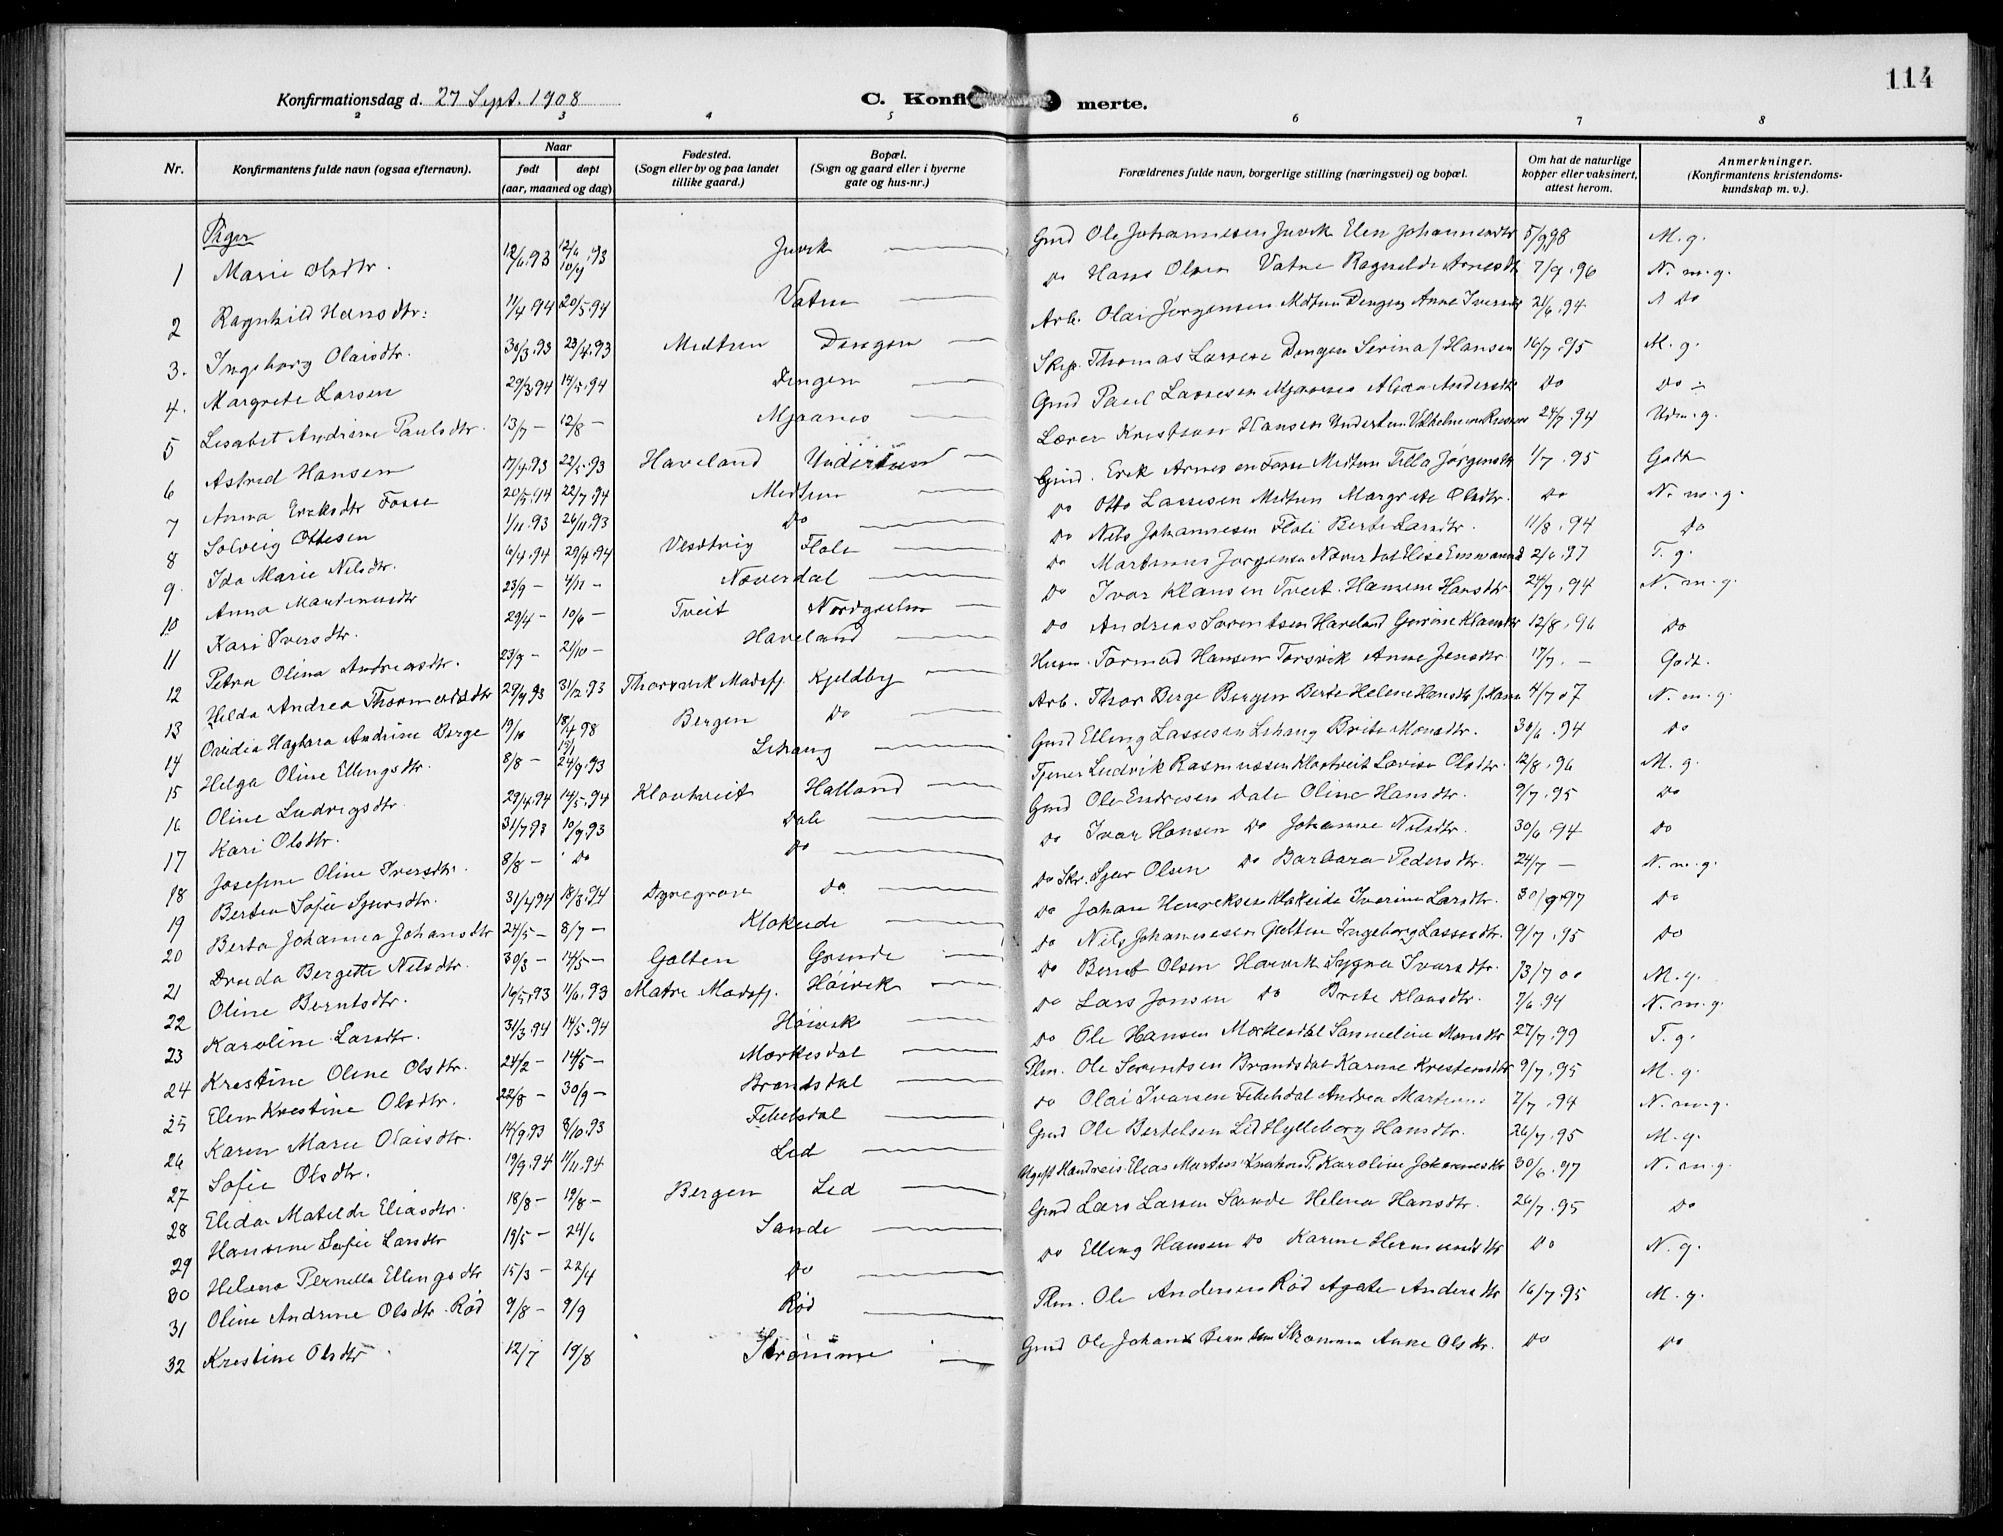 114
Konfirmationsdag d. 27 Sept. 1908 C. Konfi merte.
2 3 4 5 6 7 8
Nr. Konfirmantens fulde navn (ogsaa efternavn). Naar født døpt (aar, maaned og dag) Fødested. (Sogn eller by og paa landet tillike gaard.) Bopæl. (Sogn og gaard eller i byerne gate og hus-nr.) Forældrenes fulde navn, borgerlige stilling (næringsvei) og bopæl. Om hat de naturlige kopper eller vaksinert, attest herom. Anmerkninger. (Konfirmantens kristendoms-kundskap m. v.).
Piger
1 Marie Olsdtr. 12/6.93 Juvik Gmd Ole Johannesen Juvik Elen Johannesdtr M. g.
2 Ragnhild Hansdtr: 11/4.94 20/5.94 Vatne Do Hans Olsen Vatne Ragnilde Arnesdt 7/9.96 N. m. g.
3. Ingeborg Olaisdtr. 30/3.93 23/4.93 Medtun Dengen Arb. Olai Jørgensen Medtun Dengen Anne 21/6.94 Do
4. Margrete Larsen 29/3.94 14/5.94 Dengen Thomas Dengen Serina Hansen 16/7.95 M. g.
5 Lisabet Andrine Paulsdtr. 13/7 - 12/8 - Mjaanes Gmd Paul Lassesen Mjaanes Andersdtr Do Do
6 Astrid Hansen 17/4.93 22/5.93 Haveland Undertun Lærer Kristian Hansen Undertun 24/7.94 g.
7 Anna Eriksdtr Fosse 20/5.94 22/7.94 Medtun Gmd. Erik Arnesen Fosse Medtun Jørgensdtr 1/7.95 Godt
8 Solveig Ottesen 1/11.93 26/11.93 Do Do Otto Lassesen Medtun Margrete Olsdtr. Do N. m. g.
9. Ida Marie Nilsdtr. 6/4.94 29/4.94 Vestvig Flole Do Nils Johannesen Flole Berte Larsdtr. 11/8.94 Do
10 Anna Martinusdtr 23/9 - 4/11 - Næverdal Do Martinus Jørgensen Næverdal Elise T. g.
11 Kari Iversdtr. 29/4 - 10/6 - Tveit Nordgulen Do Ivar Klausen Tveit. Hansine Hansdtr 24/7.94 N. m. g.
12 Petra Olina Andreasdtr. 23/9 - 21/10 - Haveland Do Andreas Sørentsen Haveland Klausdtr 12/8.96 Do
13 Hilda Andrea 29/9.93 31/12.93 Thorsvik Masfj. Kjeldby Husm. Tormod Hansen Torsvik Anne Jensdtr. 17/7. - Godt.
14 Ovidia Hagbara Andrine Berge 19/10 18/4 98 Bergen Do Arb. Thor Berge Bergen Berte Helene Hansdtr 4/7 07 N. m. g.
15 Helga Oline Ellingsdtr. 8/8 - 24/9.93 Lihaug Gmd Elling Lassesen Lihaug Brite Monsdtr. 30/6.94 Do
16 Oline Ludvigsdtr. 29/4.94 14/5.94 Klovtveit Halland Tjener Ludvik Rasmussen Klovtveit Lovise Olsdtr. 12/8.96 M. g.
17 Kari Olsdtr. 31/7 93 10/9.93 Dale Gmd Ole Endresen Dale Oline Hansdtr. 9/7.95 Do
18 Josefine Oline Iversdtr. 8/8 - Do Do Do Ivar Hansen Do Johanne Nilsdtr. 30/6.94 Do
19 Bertea Sofie Sjursdtr. 31/4 94 18/8.94 Do Do Skr. Sjur Olsen Do Barbara Pedersdtr. 24/7 - N. m. g.
20 Berta Johanna Johansdtr 24/5 - 8/7 - Klokeide Do Johan Henriksen Klokeide Iverine Larsdtr. 30/9.97 Do
21 Druda Bergette Nilsdtr. 30/3 - 14/5 - Golten Grinde Do Nils Johannesen Golten Ingeborg Lassesdtr. 9/7.95 Do
22 Oline Berntsdtr. 14/5.93 11/6.93 Matre Masfj. Høivik Do Bernt Olsen Høivik Sygna Ivarsdtr. 13/7 00 M. g.
23 Karoline Larsdtr. 31/3.94 14/5.94 Høivik Do Lars Jensen Do Brite Klausdtr. 7/6.94 N. m. g.
24 Kristine Oline Olsdtr. 24/2 - 14/5 - Mørkesdal Do Ole Hansen Mørkesdal Sanneline Monsdtr 27/7.99 T. g.
25 Elen Kristine Olsdtr. 22/8 - 30/9 - Brandsdal Plm. Ole Sørentsen Brandsdal Karine Kristensdtr 9/7.95 M. g.
26 Karen Marie Olaisdtr. 14/9.93 8/10.93 Do Olai Ivarsen Andrea 7/7.94 N. m. g.
27 Sofie Olsdtr. 19/9.94 11/11.94 Lid Gmd Ole Bertelsen Lid Hylleborg Hansdtr. 26/7.95 M. g.
28 Elida Matilde Eliasdtr. 18/8 - 19/8 - Bergen Lid Elias Karoline 30/6.97 N. m. g.
29 Hansine Sofie Larsdtr 19/5 - 24/6 Sande Gmd Lars Larsen Sande Helena Hansdtr. 26/7.95 Do
30 Helena Pernella Ellingsdtr 15/3 - 22/4 Do Do Elling Hansen Do Karine Do N. g.
31 Oline Andrine Olsdtr. Rød 9/8 - 9/9 Rød Plm. Ole Andersen Rød Agate Andersdtr 16/7.95 M. g.
32 Kristine Olsdtr 12/7 19/8 Strømme Gmd Ole Johan Strømme Anne Olsdtr. Do Do